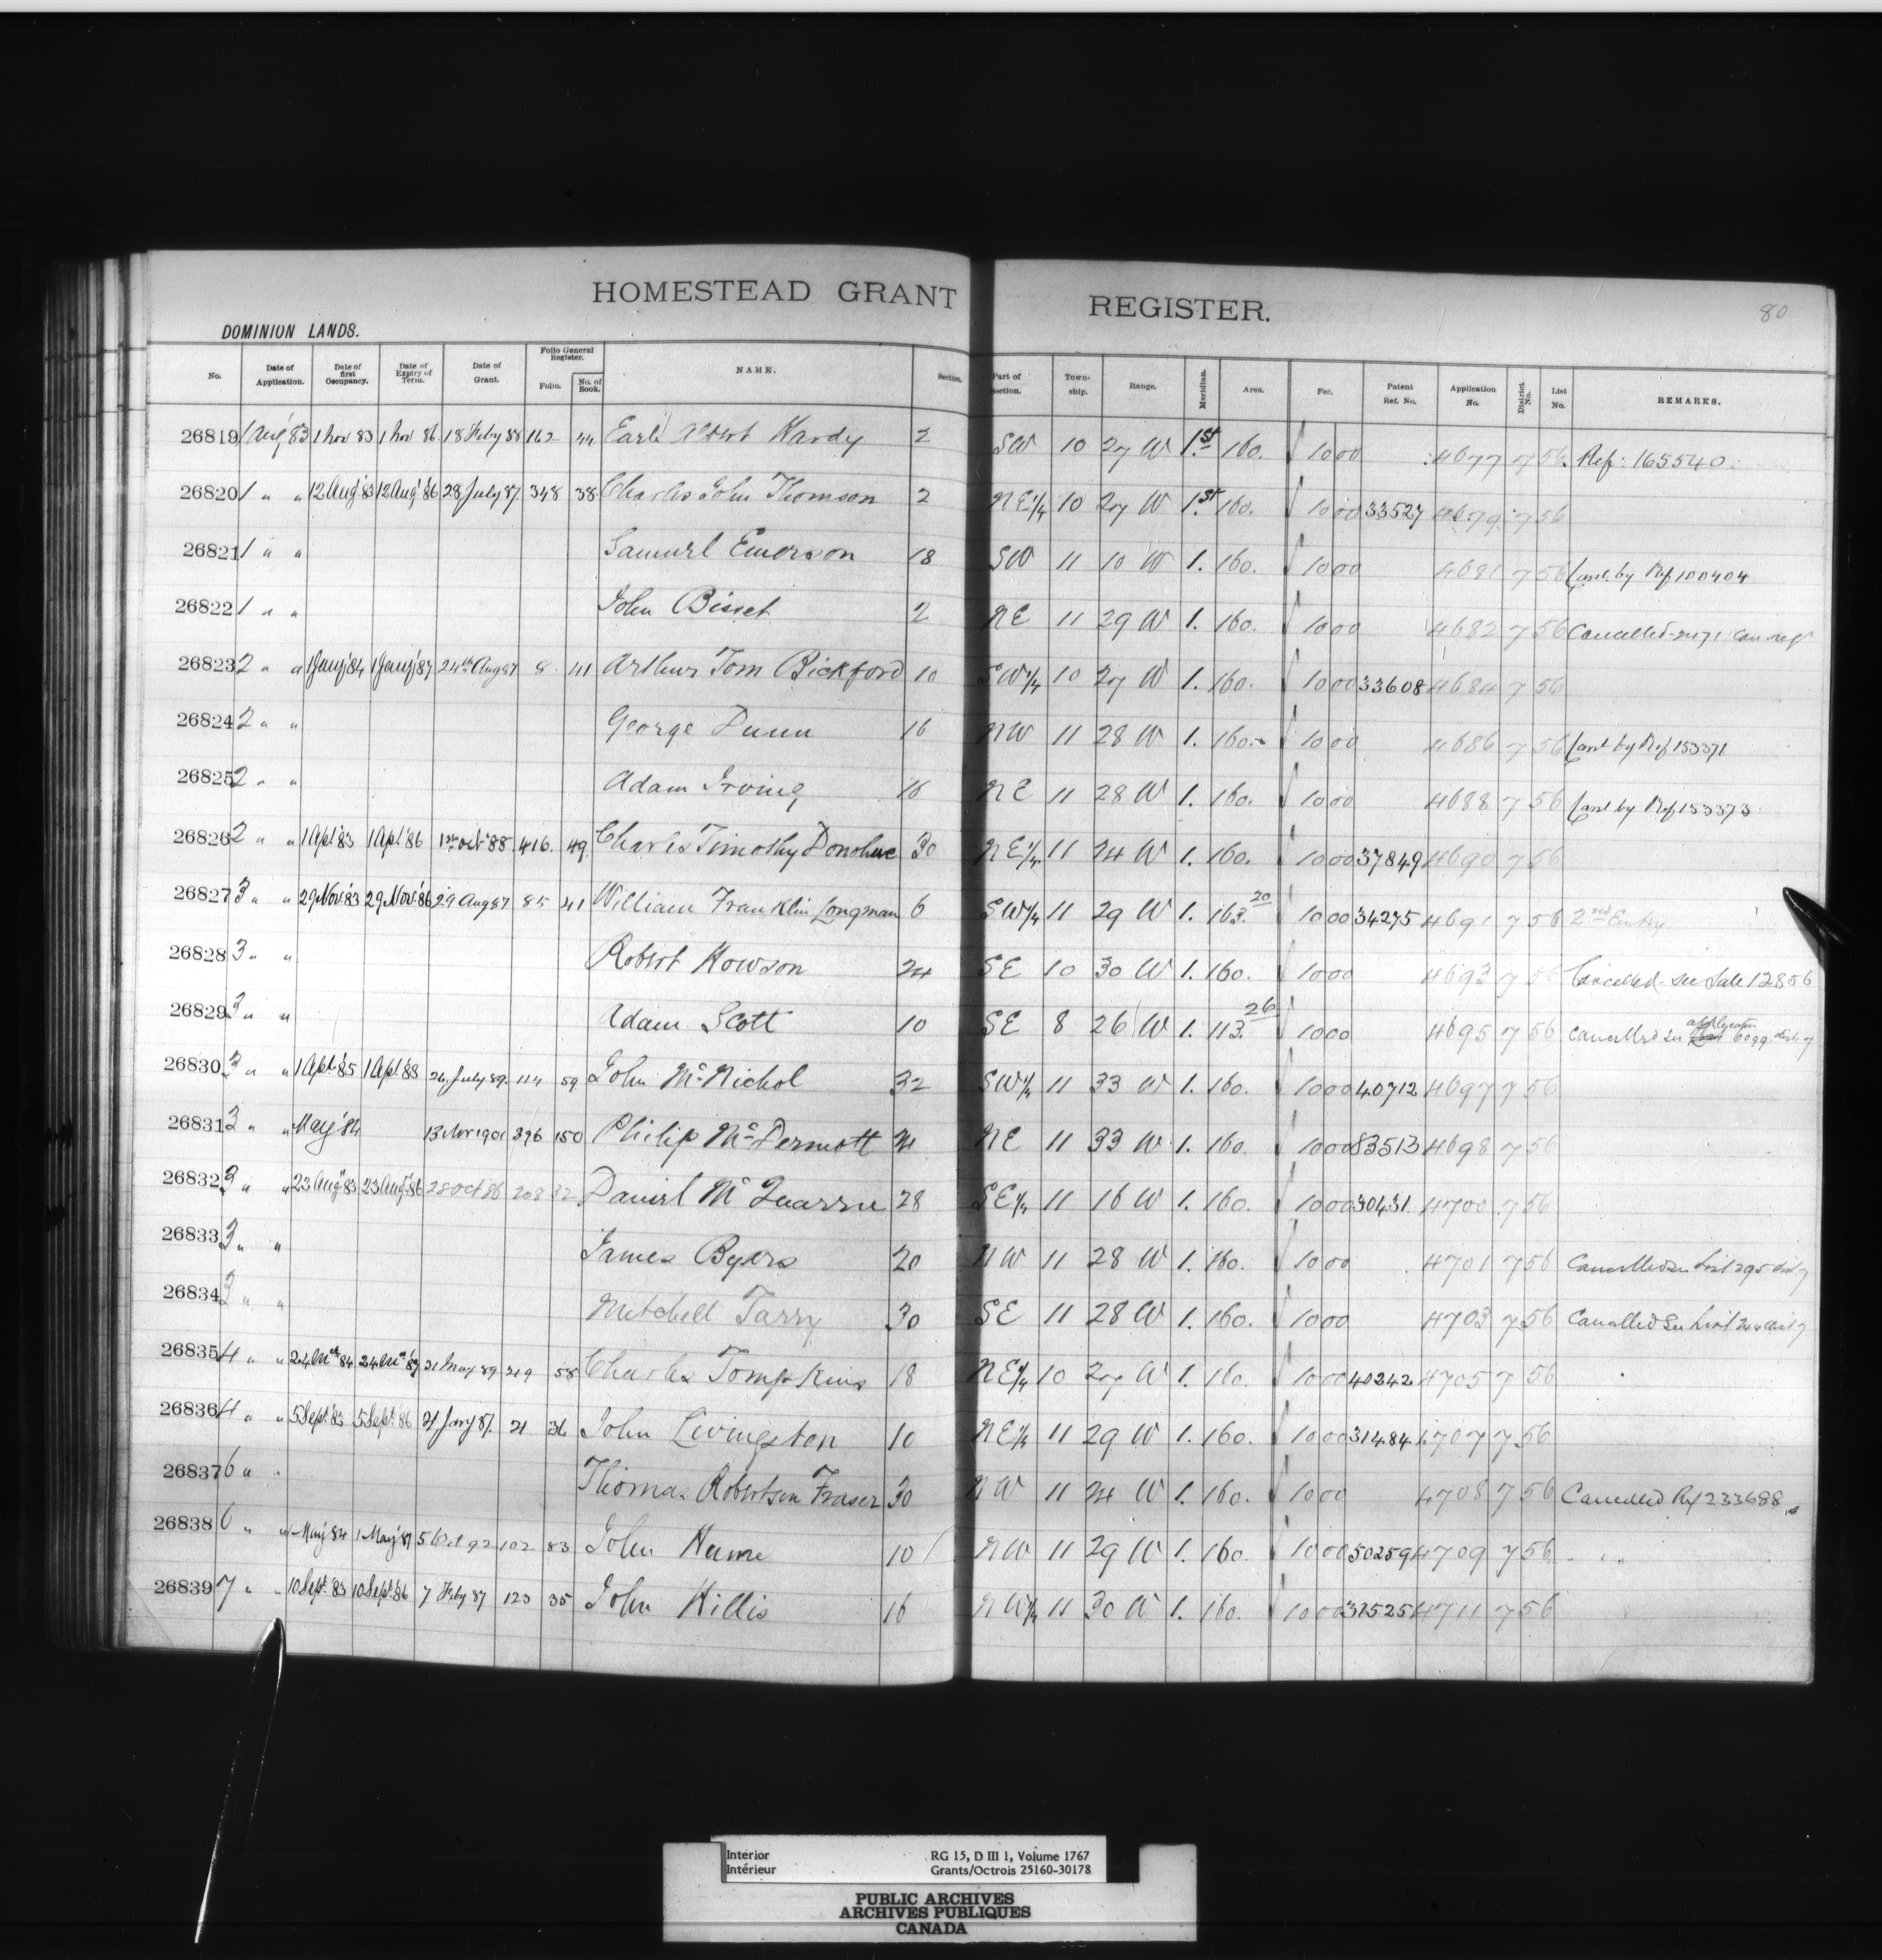 HOMESTEAD GRANT REGISTER.
80
DOMINION LANDS.
No. Date of Application. Date of first Occupancy. Date of Expiry of Term. Date of Grant. Folio General Register. Folio. No. of Book. NAME. Section. Part of Section. Town-ship. Range. Meridian. Area. Fee. Patent Ref. No. Application No. District No. List No. REMARKS.
26819 1 Aug '83 1 Nov 83 1 Nov 86 18 Feby 88 162 44 Earl Albert Hardy 2 SW 10 27 W 1.st 160. 10 00 4677 7 56 Ref: 165540
26820 1 " " 12 Aug '83 12 Aug '86 28 July 87 348 38 Charles John Thomson 2 NE 1/4 10 27 W 1.st 160. 10 00 33527 4679 7 56
26821 1 " " Samuel Emerson 18 SW 11 10 W 1. 160. 10 00 4681 7 56 Canl. by Ref 100404
26822 1 " " John Bisset 2 NE 11 29 W 1. 160. 10 00 4682 7 56 Cancelled 2471
26823 2 " " 1 Jany '84 1 Jany '87 24th Aug 87 8 41 Arthur Tom Bickford 10 SW 1/4 10 27 W 1. 160. 10 00 33608 4684 7 56
26824 2 " " George Dunn 16 NW 11 28 W 1. 160. 10 00 4686 7 56 Canl by Ref 153371
26825 2 " " Adam Irving 16 NE 11 28 W 1. 160. 10 00 4688 7 56 Canl by Ref 153373
26826 2 " " 1 Apl '83 1 Apl '86 1st Oct '88 416 49 Charles Timothy Donohue 30 NE 1/4 11 24 W 1. 160. 10 00 37849 4690 7 56
26827 3 " " 29 Nov '83 29 Nov '86 29 Aug 87 85 41 William Franklin Longman 6 SW 1/4 11 29 W 1. 163.20 10 00 34275 4691 7 56 2nd Entry
26828 3 " " Robert Howson 24 SE 10 30 W 1. 160. 10 00 4693 7 56 Cancelled see Sale 12856
26829 3 " " Adam Scott 10 SE 8 26 W 1. 113.26 10 00 4695 7 56 Cancelled see application 6099 dist. 7
26830 3 " " 1 Apl '85 1 Apl '88 26 July 89 114 59 John McNichol 32 SW 1/4 11 33 W 1. 160. 10 00 40712 4697 7 56
26831 3 " " May '84 13 Nov 1901 396 150 Philip McDermott 24 NE 11 33 W 1. 160. 10 00 83513 4698 7 56
26832 3 " " 23 Aug '83 23 Aug '86 28 Oct 86 208 32 Daniel McQuarrie 28 SE 1/4 11 16 W 1. 160. 10 00 30431 4700 7 56
26833 3 " " James Byers 20 NW 11 28 W 1. 160. 10 00 4701 7 56 Cancelled see List 295 dist 7
26834 3 " " Mitchell Tarry 30 SE 11 28 W 1. 160. 10 00 4703 7 56 Cancelled See List 244 dist 7
26835 4 " " 24 Mch 84 24 Mch '87 21 May 89 219 58 Charles Tompkins 18 NE 1/4 10 27 W 1. 160. 10 00 40242 4705 7 56
26836 4 " " 5 Sept. '83 5 Sept. '86 21 Jany 87. 21 36 John Livingston 10 NE 1/4 11 29 W 1. 160. 10 00 31484 4707 7 56
26837 6 " " Thomas Robertson Fraser 30 NW 11 24 W 1. 160. 10 00 4708 7 56 Cancelled Ref 233688
26838 6 " " 1 May '84 1 May '87 5 Oct 92 102 83 John Hume 10 NW 11 29 W 1. 160. 10 00 50259 4709 7 56
26839 7 " " 10 Sept. '83 10 Sept. '86 7 Feby 87 123 35 John Hillis 16 NW 1/4 11 30 W 1. 160. 10 00 31525 4711 7 56
Interior RG 15, D III 1, Volume 1767
Intérieur Grants/Octrois 25160-30178
PUBLIC ARCHIVES
ARCHIVES PUBLIQUES
CANADA